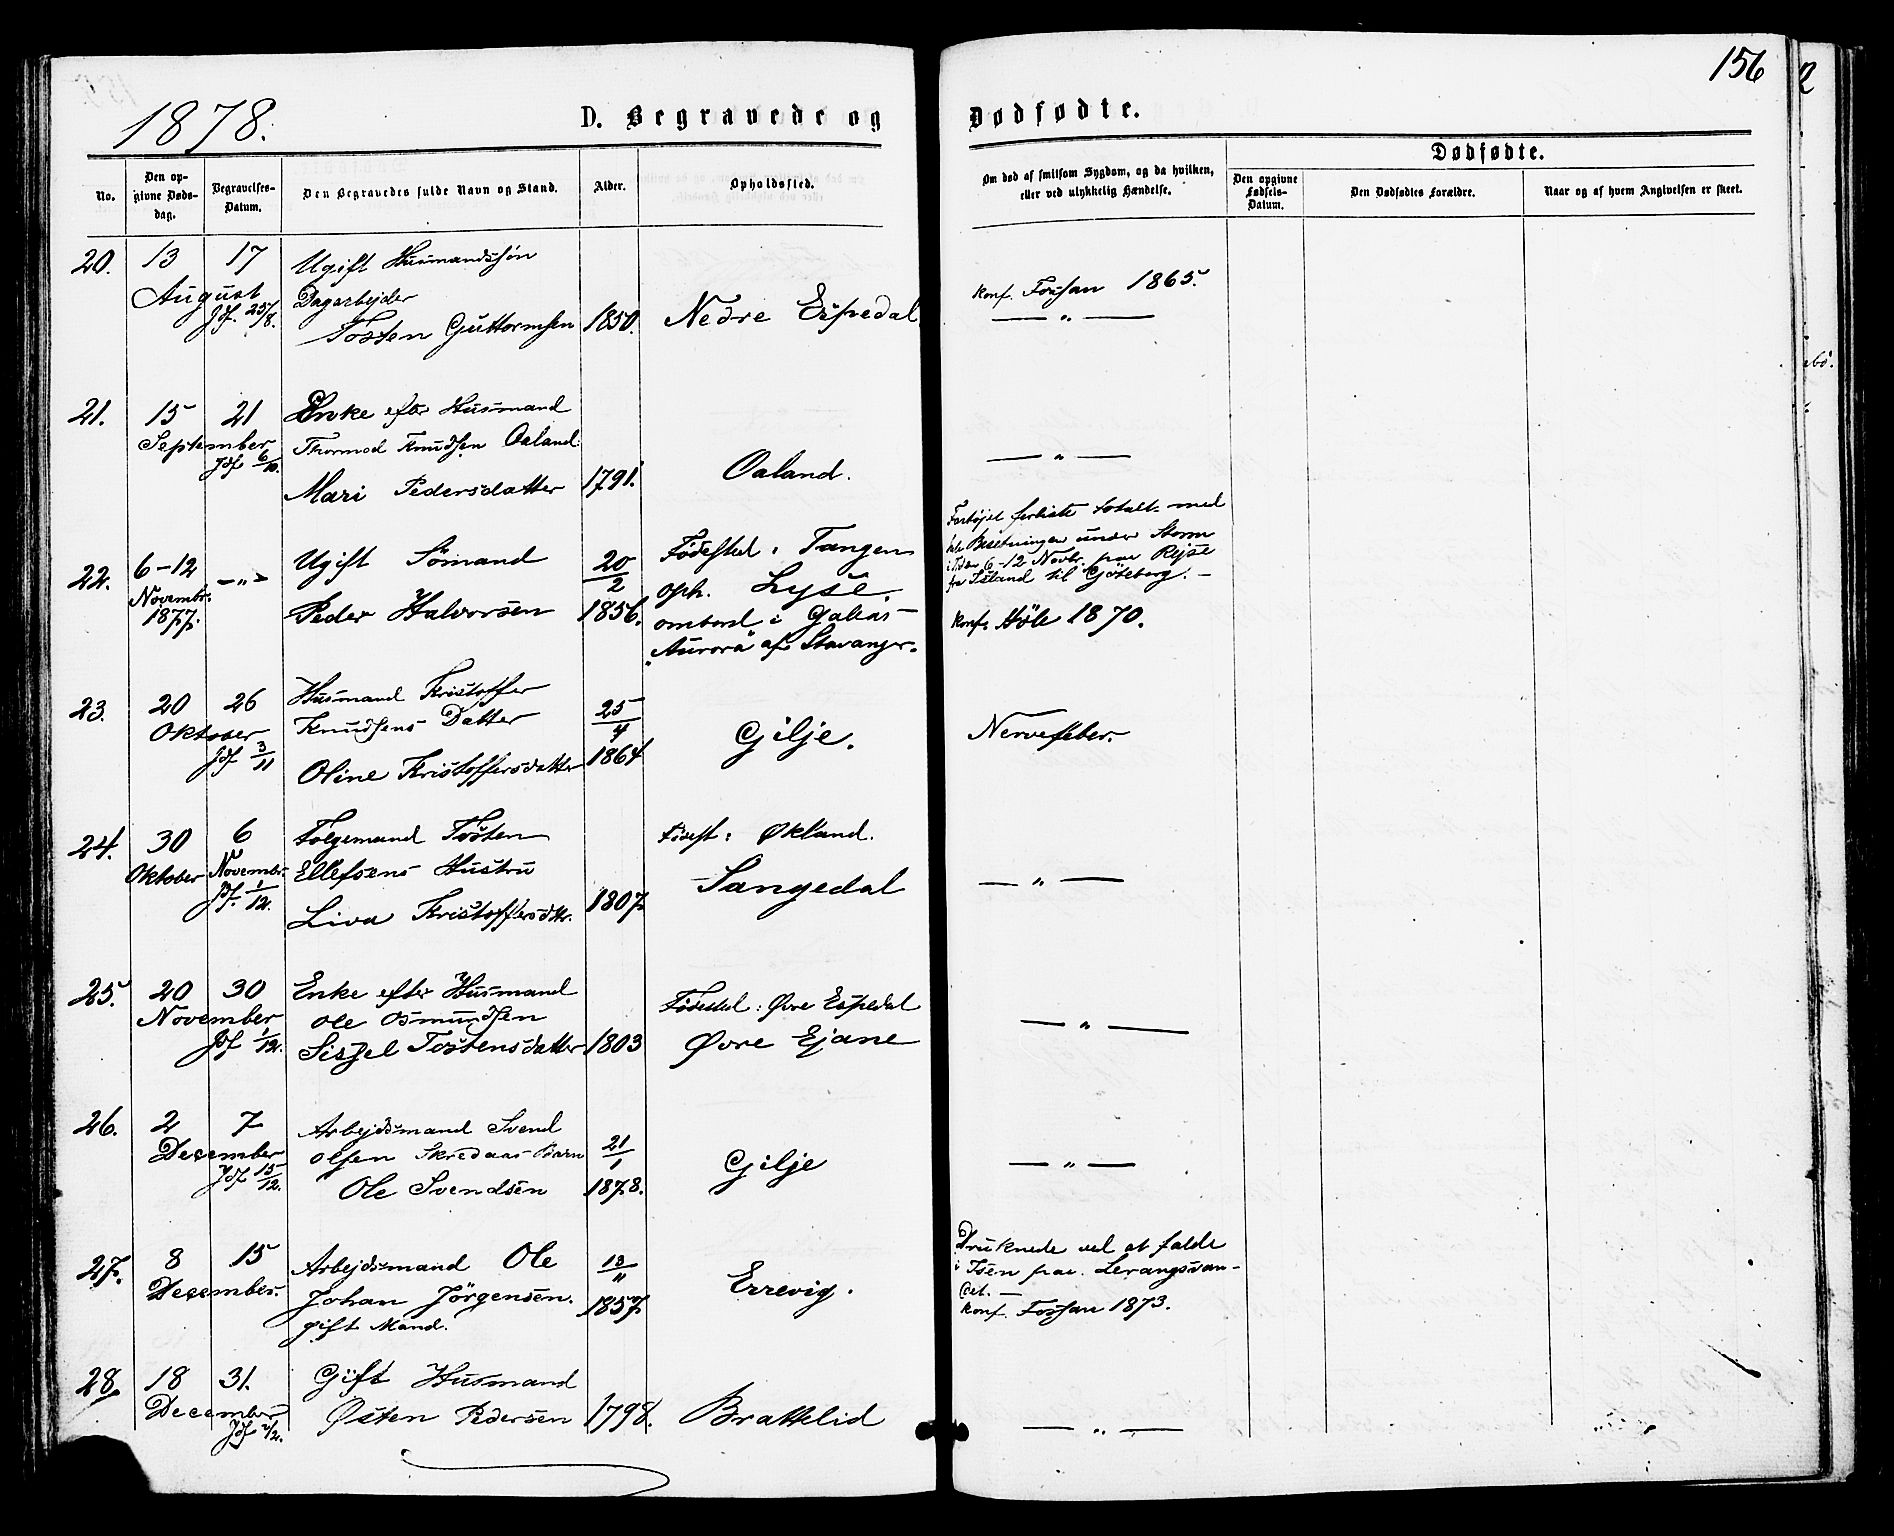 156
1878.
D. Begravede og Dødfødte.
No.
Den opgivne Døds-
dag.
Begravelses-
Datum.
Den Begravedes fulde Navn og Stand.
Alder.
Opholdssted.
Om død af smitsom Sygdom, og da hvilken,
eller ved ulykkelig Hændelse.
Dødfødte.
Den opgivne
Fødsels-
Datum.
Den Dødfødtes Forældre.
Naar og af hvem Angivelsen er skeet.
20. 13 17 Ugift Husmandssøn
August Dagarbejder
Jdf. 25/8. Tosten Guttormsen 1850. Nedre Espedal.
konf. Fossan 1865.
— " —
21. 15 21 Enke efter Husmand
September Thormod Knudsen Oaland.
Jdf 6/10. Mari Pedersdatter 1791. Oaland.
— " —
22. 6-12 — " — Ugift Sömand 20/2
Novembr. 1877. Peder Halvorsen 1856.
Fødested: Tangen
oph. Lyse,
ombord i Galeas
"Aurora" af Stavanger.
Fartøjet forliste totalt med
hele Besetningen under Storm
i Tiden 6-12 Novbr. paa Rejse
fra Island til Göteborg. —
Konf. Höle 1870.
23. 20 26 Husmand Kristoffer
Oktober Knudsens Datter 25/4
Jdf 3/11 Oline Kristoffersdatter 1864 Gilje.
Nervefeber.
24. 30 6 Følgemand Tosten
Oktober Novembr. Ellefsens Hustru
Jdf. 1/12. Liva Kristoffersdtr. 1807.
Fødest: Økland.
Sangedal
— " —
25. 20 30 Enke efter Husmand
November Ole Osmundsen
Jdf 1/12. Sissel Tostensdatter 1803
Fødested: Øvre Espedal
Øvre Ejane
— " —
26. 2 7 Arbejdsmand Svend
December Olsen Skredaas Barn 21/1
Jdf 15/12. Ole Svendsen 1878. Gilje
— " —
27. 8 15 Arbejdsmand Ole 13/11
December. Johan Jörgensen. 1857. Errevig.
gift Mand.
Druknede ved at falde
i Isen paa Lerangsvan-
det. —
Konf. Fossan 1873.
28. 18 31. Gift Husmand
December Østen Pedersen 1798. Brattelid
Jdf 2/2.
— " —